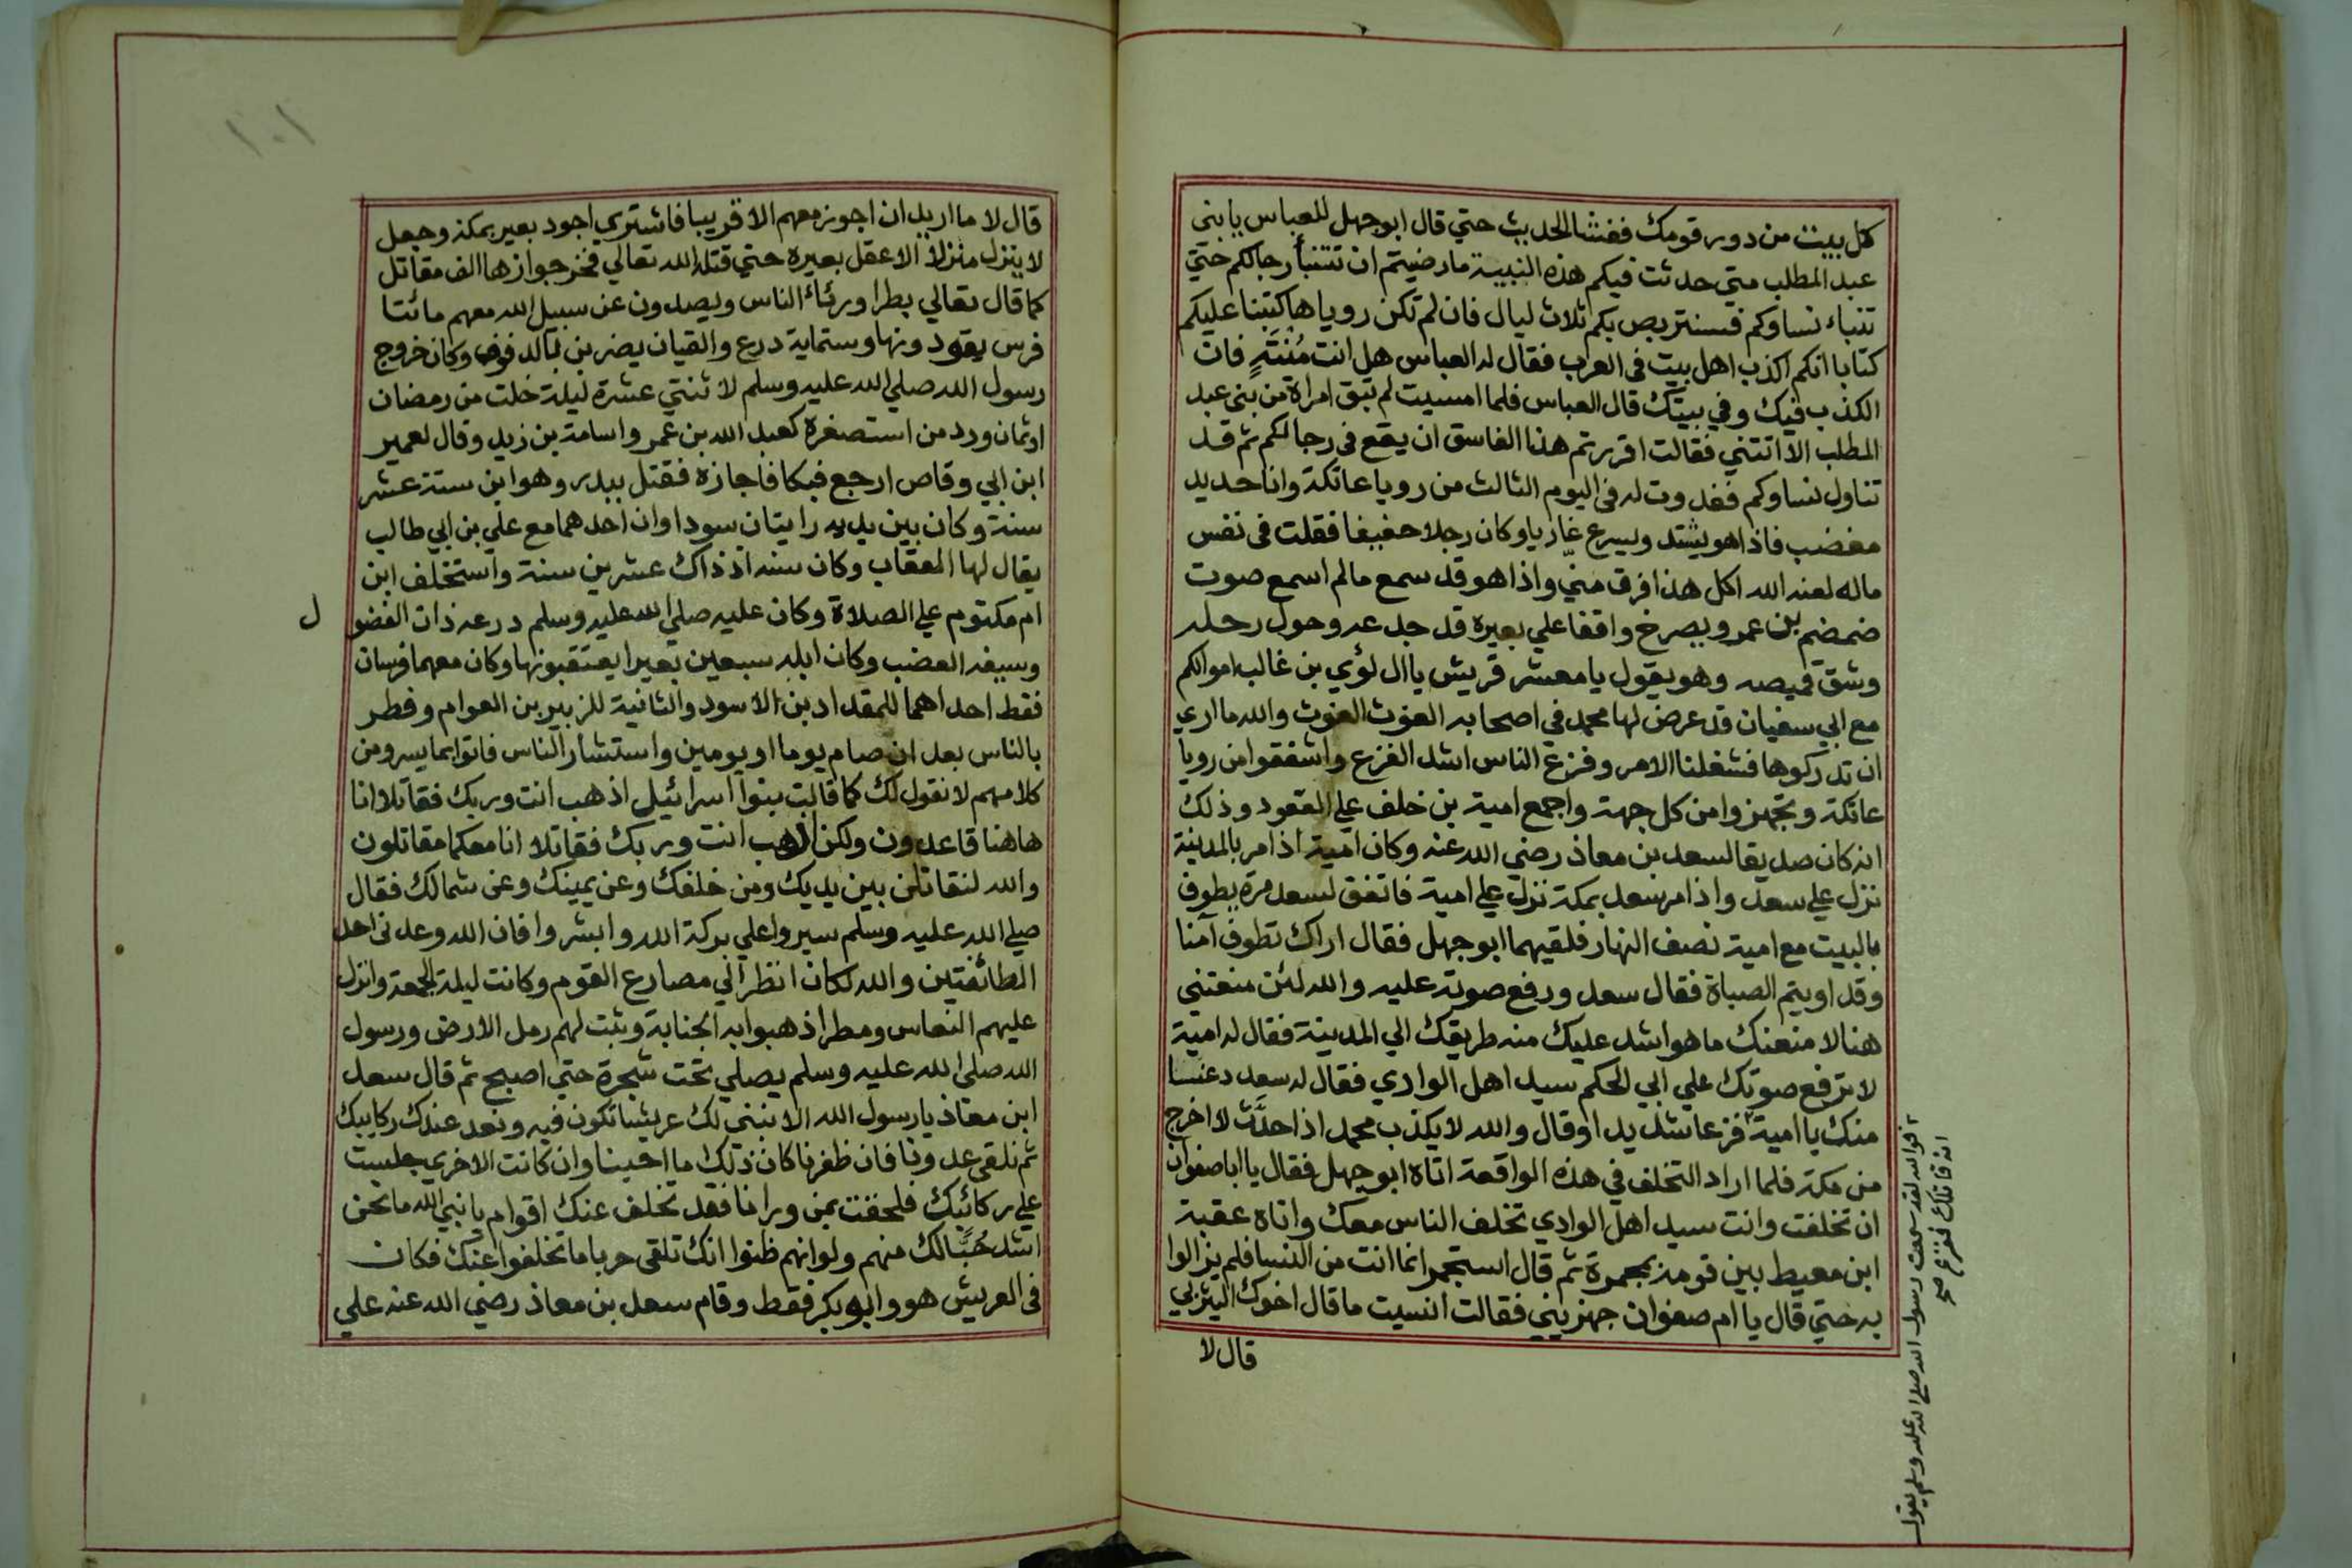 كل بيت من دور قومك ففشا الحديث حتي قال ابو جهل للعباس يا بني
عبد المطلب متي حدثت فيكم هذه النبية ما رضيتم ان تتنبأ رجالكم حتي
تنباء نساوكم فسنتربص بكم ثلاث ليال فان لم تكن روياها كتبنا عليكم
كتابا انكم اكذب اهل بيت في العرب فقال له العباس هل انت مُنْتَهٍ فان
الكذب فيك وفي بيتك قال العباس فلما امسيت لم تبق امراة من بني عبد
المطلب الا اتتني فقالت اقررتم هذا الفاسق ان يقع في رجالكم ثم قد
تناول نساوكم فغدوت له في اليوم الثالث من رويا عاتكة وانا حديد
مغضب فاذا هو يشتد ويسرع غازيا وكان رجلا خفيفا فقلت في نفس
ماله لعنه الله اكل هذا فرق مني واذا هو قد سمع مالم اسمع صوت
ضمضم بن عمرو يصرخ واقفا علي بعيره قد جدعه وحول رحله
وشق قميصه وهو يقول يا معشر قريش يا ال لؤي بن غالب اموالكم
مع ابي سفيان قد عرض لها محمد في اصحابه الغوث الغوث والله ما اري
ان تدركوها فشغلنا الامر وفزع الناس اشد الفزع واشفقوا من رويا
عاتكة وتجهزوا من كل جهة واجمع امية بن خلف علي القعود وذلك
انه كان صديقا لسعد بن معاذ رضي الله عنه وكان امية اذا مر بالمدينة
نزل علي سعد واذا مر سعد بمكة نزل علي امية فاتفق لسعد مرة يطوف
بالبيت مع امية نصف النهار فلقيهما ابو جهل فقال اراك تطوف آمنا
وقد اويتم الصباة فقال سعد ورفع صوته عليه والله لئن منعتني
هنا لامنعنك ما هو اشد عليك منه طريقك الي المدينة فقال له امية
لا ترفع صوتك علي ابي الحكم سيد اهل الوادي فقال له سعد دعنا
منك يا امية فزعا شديدا وقال والله لا يكذب محمد اذا حدَّث لا اخرج
من مكة فلما اراد التخلف في هذه الواقعة اتاه ابو جهل فقال يا ابا صفوان
ان تخلفت وانت سيد اهل الوادي تخلف الناس معك واتاه عقبة
ابن معيط بين قومه بمجمرة ثم قال استجمر انما انت من النسا فلم يزالوا
به حتي قال يا ام صفوان جهزيني فقالت انسيت ما قال اخوك اليثربي
قال لا
فوالله لقد سمعت رسول الله صلي الله عليه وسلم يقول
انه قاتلك ففزع صح
١٠١
قال لا ما اريد ان اجوز معهم الا قريبا فاشتري اجود بعير بمكة وجعل
لا ينزل منزلا الا عقل بعيره حتي قتله الله تعالي فخرجوا زها الف مقاتل
كما قال تعالي بطرا ورئاء الناس ويصدون عن سبيل الله معهم مائتا
فرس يقودونها وستماية درع والقيان يضربن بالدفوف وكان خروج
رسول الله صلي الله عليه وسلم لاثنتي عشرة ليلة خلت من رمضان
اوثمان ورد من استصغره كعبد الله بن عمر واسامة بن زيد وقال لعمير
ابن ابي وقاص ارجع فبكا فاجازه فقتل ببدر وهو ابن ستة عشر
سنة وكان بين يديه رايتان سوداوان احدهما مع علي بن ابي طالب
يقال لها العقاب وكان سنه اذ ذاك عشرين سنة واستخلف ابن
ام مكتوم علي الصلاة وكان عليه صلي الله عليه وسلم درعه ذات الفضو
ل
وسيفه العضب وكان ابله سبعين بعيرا يعتقبونها وكان معهما فرسان
فقط احداهما للمقداد بن الاسود والثانية للزبير بن العوام وفطر
بالناس بعد ان صام يوما او يومين واستشار الناس فاتوا بما يسر ومن
كلامهم لا نقول لك كما قالت بنوا اسرائيل اذهب انت وربك فقاتلا انا
هاهنا قاعدون ولكن اذهب انت وربك فقاتلا انا معكما مقاتلون
والله لنقاتلن بين يديك ومن خلفك وعن يمينك وعن شمالك فقال
صلي الله عليه وسلم سيروا علي بركة الله وابشروا فان الله وعدني احد
الطائفتين والله لكان انظر الي مصارع القوم وكانت ليلة الجمعة وانزل
عليهم النعاس ومطرا ذهبوا به الجنابة وثبت لهم رمل الارض ورسول
الله صلي الله عليه وسلم يصلي تحت شجرة حتي اصبح ثم قال سعد
ابن معاذ يا رسول الله الا نبني لك عريشا تكون فيه ونعد عندك ركايبك
ثم نلقي عدونا فان ظفرنا كان ذلك ما احبنا وان كانت الاخري جلست
علي ركائبك فلحقت بمن ورانا فقد تخلف عنك اقوام يا نبي الله ما نحن
اشد حُبًّا لك منهم ولو انهم ظنوا انك تلقي حربا ما تخلفوا عنك فكان
في العريش هو وابو بكر فقط وقام سعد بن معاذ رضي الله عنه علي